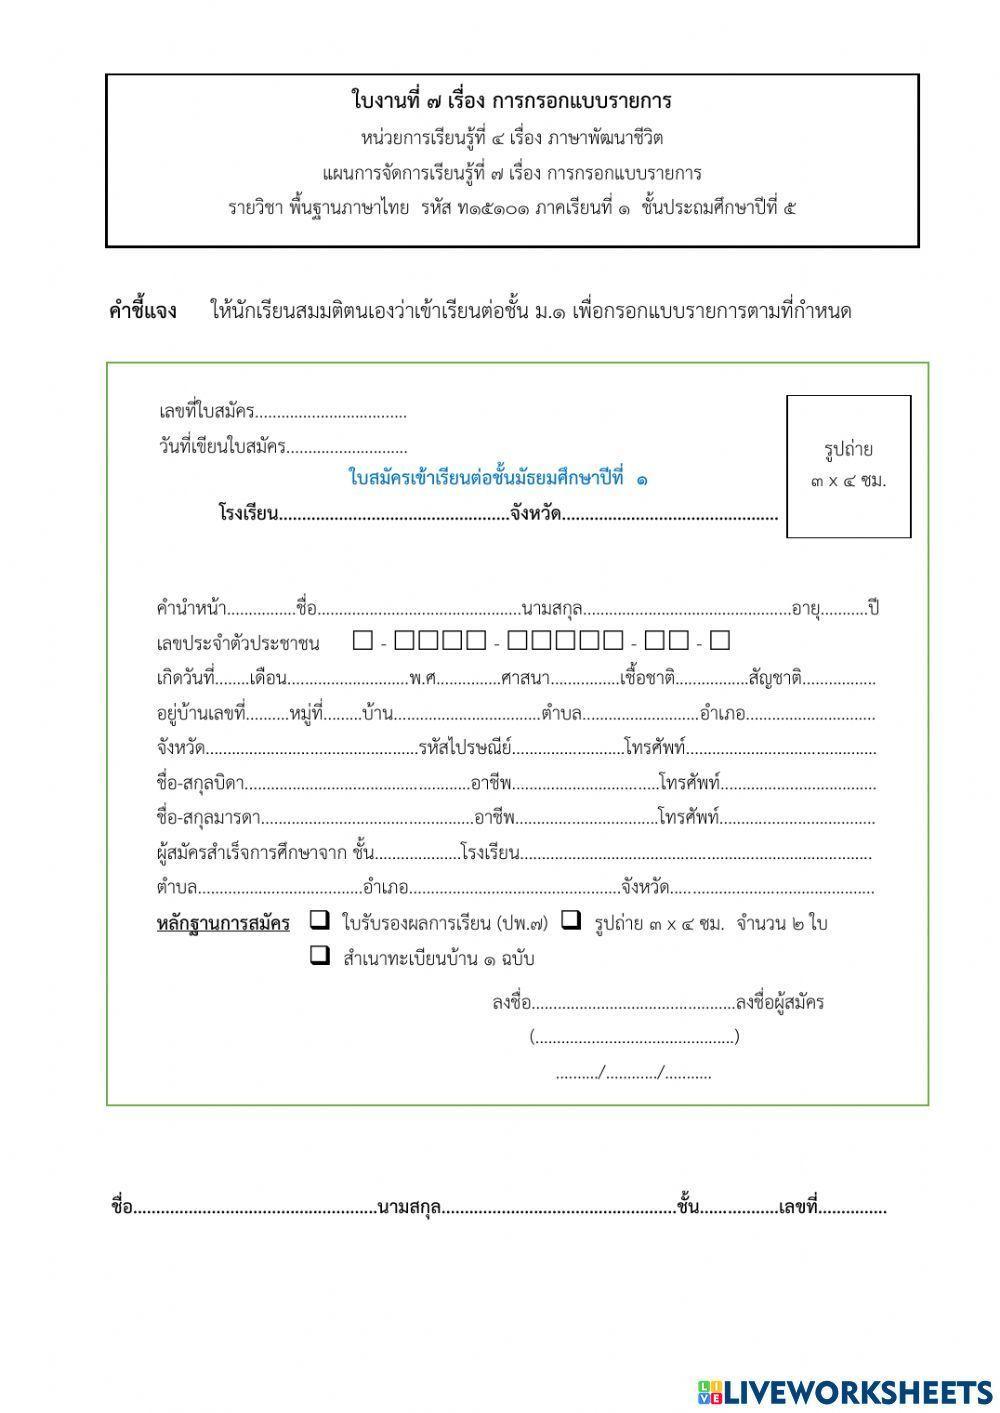 ใบงานที่ ๗ เรื่อง การกรอกแบบรายการ
หน่วยการเรียนรู้ที่ ๔ เรื่อง ภาษาพัฒนาชีวิต
แผนการจัดการเรียนรู้ที่ ๗ เรื่อง การกรอกแบบรายการ
รายวิชา พื้นฐานภาษาไทย รหัส ท๑๕๑๐๑ ภาคเรียนที่ ๑ ชั้นประถมศึกษาปีที่ ๕
คำชี้แจง ให้นักเรียนสมมติตนเองว่าเข้าเรียนต่อชั้น ม.๑ เพื่อกรอกแบบรายการตามที่กำหนด
เลขที่ใบสมัคร...................................
วันที่เขียนใบสมัคร............................
รูปถ่าย
๓ x ๔ ซม.
ใบสมัครเข้าเรียนต่อชั้นมัธยมศึกษาปีที่ ๑
โรงเรียน..................................................จังหวัด...............................................
คำนำหน้า................ชื่อ...............................................นามสกุล................................................อายุ...........ปี
เลขประจำตัวประชาชน ☐ - ☐☐☐☐ - ☐☐☐☐☐ - ☐☐ - ☐
เกิดวันที่........เดือน............................พ.ศ...............ศาสนา................เชื้อชาติ.................สัญชาติ.................
อยู่บ้านเลขที่..........หมู่ที่.........บ้าน..................................ตำบล...........................อำเภอ..............................
จังหวัด.................................................รหัสไปรษณีย์..........................โทรศัพท์............................................
ชื่อ-สกุลบิดา....................................................อาชีพ..................................โทรศัพท์....................................
ชื่อ-สกุลมารดา.................................................อาชีพ.................................โทรศัพท์....................................
ผู้สมัครสำเร็จการศึกษาจาก ชั้น....................โรงเรียน.................................................................................
ตำบล......................................อำเภอ.................................................จังหวัด...............................................
หลักฐานการสมัคร ❑ ใบรับรองผลการเรียน (ปพ.๗) ❑ รูปถ่าย ๓ x ๔ ซม. จำนวน ๒ ใบ
❑ สำเนาทะเบียนบ้าน ๑ ฉบับ
ลงชื่อ...............................................ลงชื่อผู้สมัคร
(..............................................)
........../............/...........
ชื่อ.....................................................นามสกุล...................................................ชั้น.................เลขที่...............
LIVE LIVEWORKSHEETS